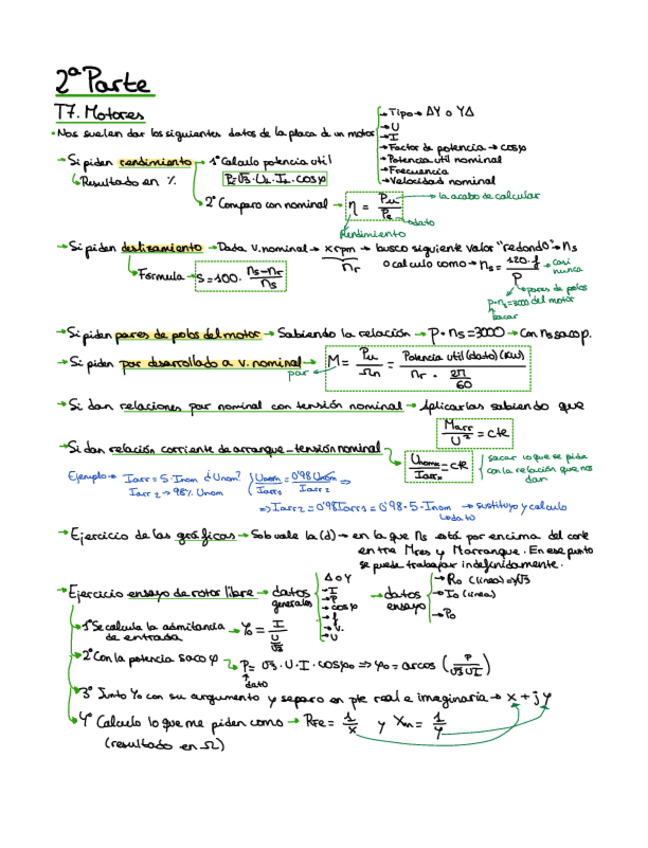 2ª Parte
T7. Motores
• Nos suelen dar los siguientes datos de la placa de un motor
→ Tipo → ΔY o YΔ
→ U
→ I
→ Factor de potencia → cosφ
→ Potencia util nominal
→ Frecuencia
→ Velocidad nominal
→ Si piden rendimiento → 1º Calculo potencia util
↳ Resultado en %
P=√3·U_L·I_L·cosφ
2º Comparo con nominal → η = Pu/Pe
→ la acabo de calcular
→ dato
Rendimiento
→ Si piden deslizamiento → Dada V. nominal → x rpm → busco siguiente valor "redondo" → ns
nr
o calculo como → ns = 120·f/P → casi nunca
Formula → S=100· ns-nr/ns
pares de polos del motor
p·ns=3000
sacar
→ Si piden pares de polos del motor → Sabiendo la relación → p·ns=3000 → Con ns saco p.
→ Si piden par desarrollado a v. nominal → M = Pu/Ωn = Potencia util (dato) (kW)/nr · 2π/60
par
→ Si dan relaciones par nominal con tensión nominal → Aplicarlas sabiendo que
Marr/U² = cte
→ Si dan relación corriente de arranque - tensión nominal
Unom/Iarr = cte
sacar lo que se pide con la relación que nos dan
Ejemplo → Iarr = 5·Inom ¿Unom?
Iarr2 → 98% Unom
Unom/Iarr1 = 0'98 Unom/Iarr2 ⇒
⇒ Iarr2 = 0'98Iarr1 = 0'98·5·Inom → sustituyo y calculo
↳ dato
→ Ejercicio de las gráficas → Solo vale la (d) → en la que ns está por encima del corte
entre Mres y Marranque. En ese punto
se puede trabajar indefinidamente.
→ Ejercicio ensayo de rotor libre → datos generales
Δ o Y
→ I
→ P
→ cosφ
→ f
→ V.
→ U
→ datos ensayo
→ Ro (línea) ⇒ √3
→ Io (línea)
→ Po
→ 1º Se calcula la admitancia de entrada → Yo = I/(U/√3)
→ 2º Con la potencia saco φ
↳ P = √3·U·I·cosφo ⇒ φo = arcos (P/√3UI)
dato
→ 3º Junto Yo con su argumento y separo en pte real e imaginaria → x + jy
→ 4º Calculo lo que me piden como → RFe = 1/x y Xm = 1/y
(resultado en Ω)